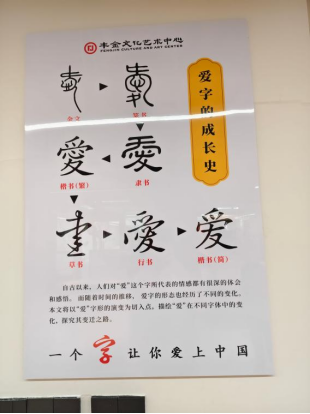 丰金文化艺术中心
FENGJIN CULTURE AND ART CENTER
爱字的成长史
金文
篆书
愛
楷书(繁)
隶书
草书
愛
行书
爱
楷书(简)
自古以来，人们对“爱”这个字所代表的情感都有很深的体会
和感悟。而随着时间的推移，爱字的形态也经历了不同的变化。
本文将以“爱”字形的演变为切入点，描绘“爱”在不同字体中的变
化，探究其变迁之路。
一个字让你爱上中国